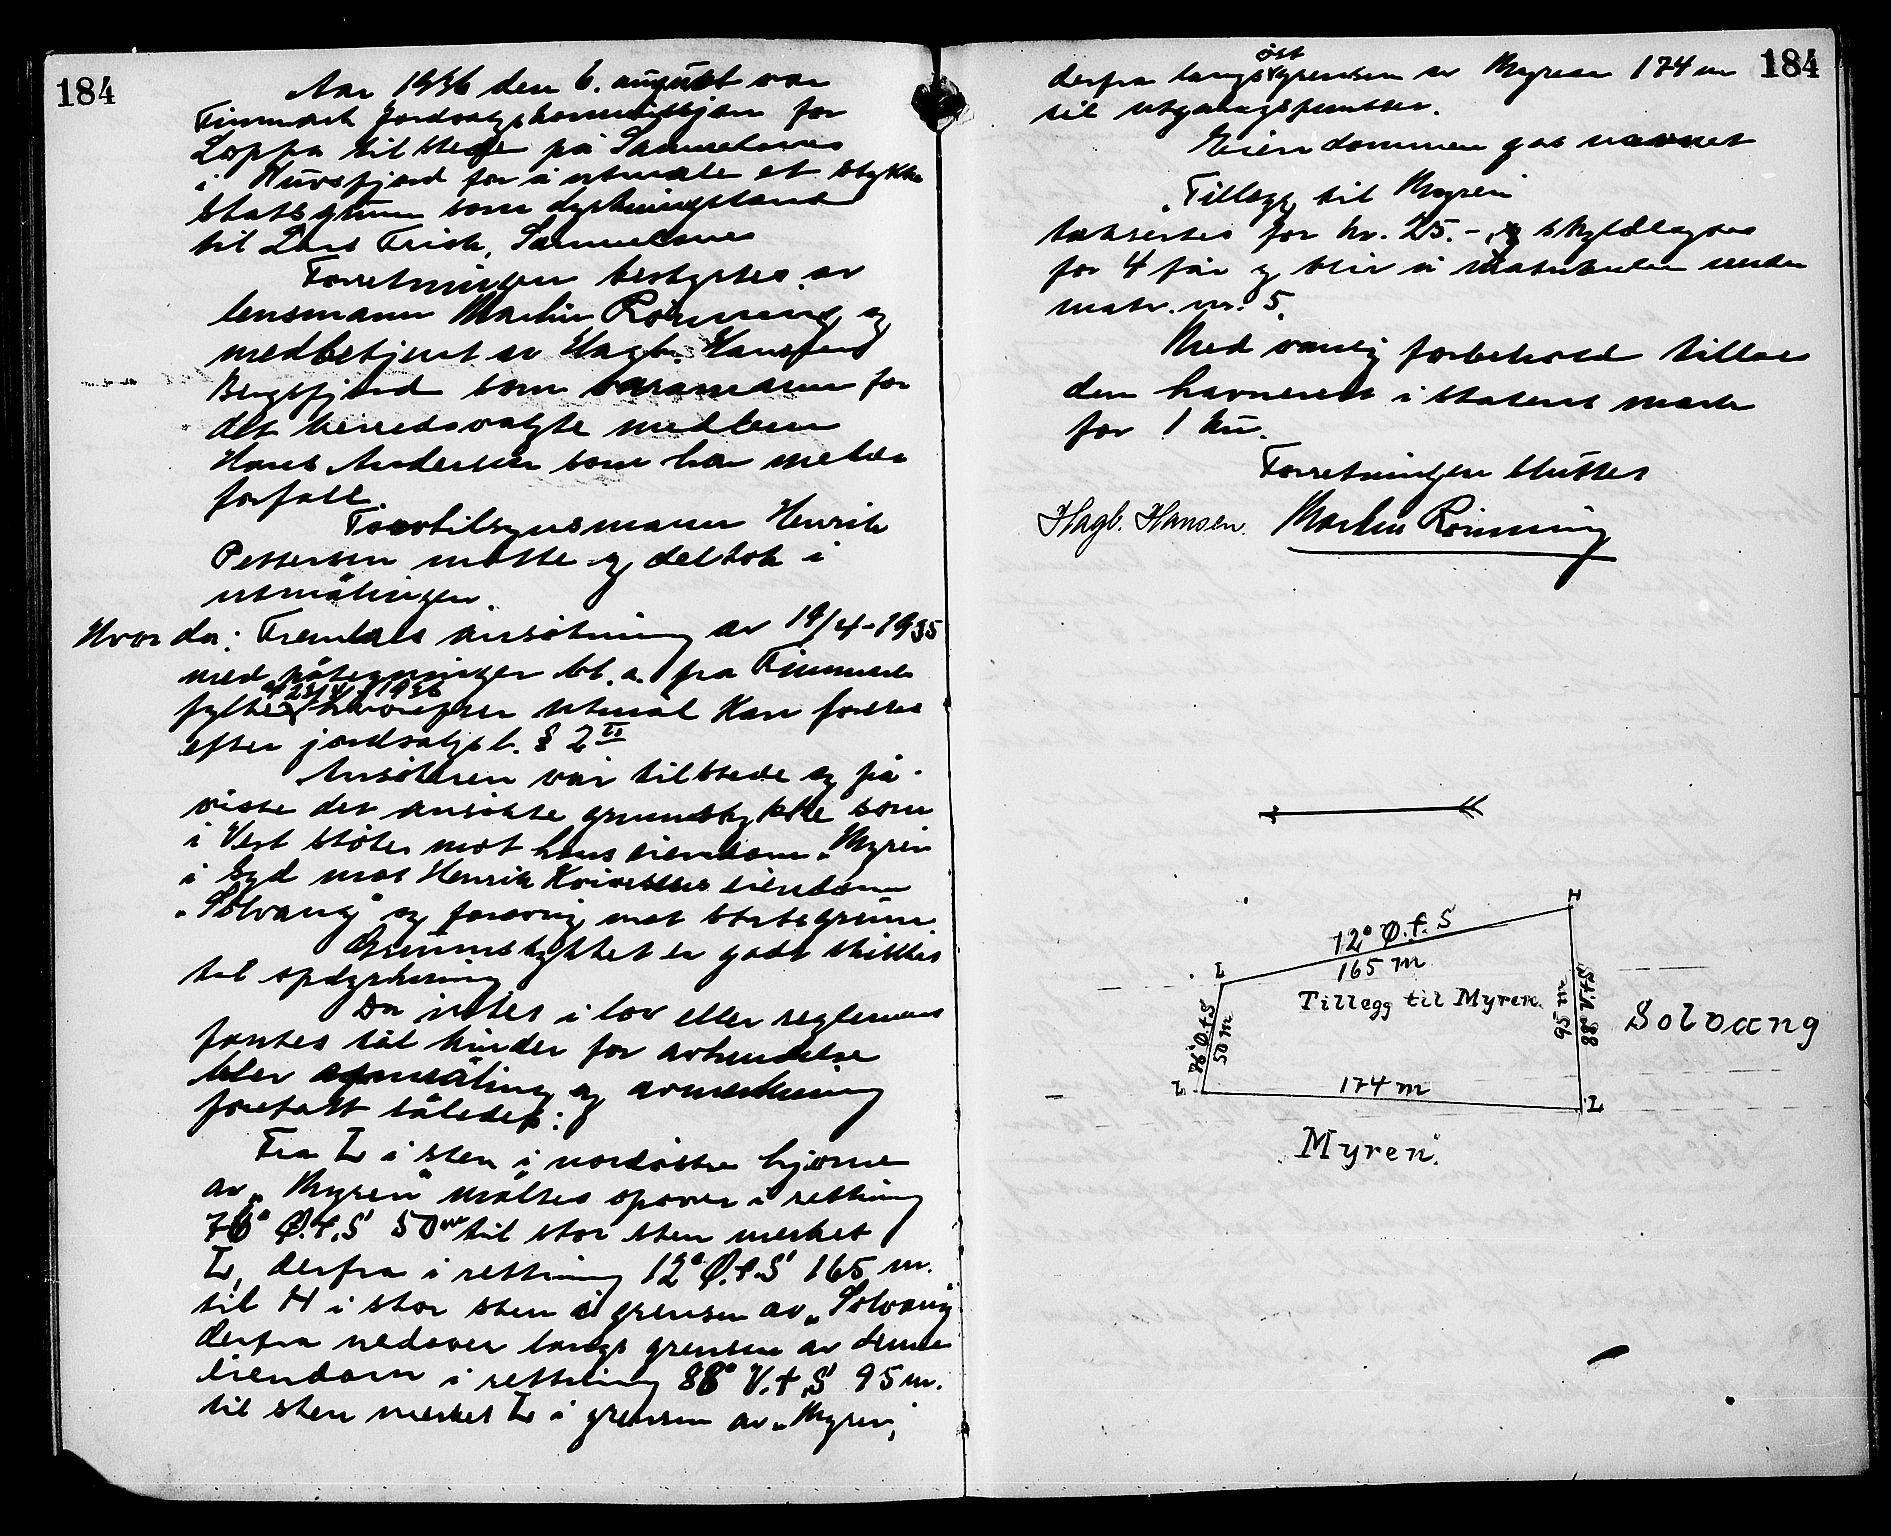 184
Aar 1936 den 6. august var
Finmark Jordsalgskommisjon for
Loppa tilstede på Samuelsnes
i Nuvsfjord for å utmåle et stykke
statsgrunn som dyrkningsland
til Lars Frisk, Samuelsnes
Forretningen bestyrtes av
lensmann Martin Rønning og
medbetjent av Hagb. Hansen
Bergsfjord som varamann for
det herredsvalgte medlem
Hans Andersen som har meldt
forfall.
Skovtilsynsmann Henrik
Pettersen møtte og deltok i
utmålingen.
Hvorda: Fremlaes ansøkning av 19/4-1935
med påtegninger bl. a. fra Finmark
fylke av 23/4 1936 hvorefter utmål kan foretas
efter jordsalgsl. § 2
Ansøkeren var tilstede og på-
viste det ansøkte grunnstykke som
i Vest støter mot hans eiendom „Myren
i Syd mot Henrik eiendom
„Solvang" og forøvrig mot statsgrunn.
Grunnstykket er godt skikket
til opdyrkning
Da intet i lov eller reglement
fantes til hinder for avhendelse
blev opmåling og avmerkning
foretatt således:
Fra L i sten i nordøstre hjørne
av „Myren" måltes opover i retning
76° Ø.t.S 50 m til stor sten merket
L, derfra i retning 12° Ø.t.S 165 m.
til H i stor sten i grensen av „Solvang
derfra nedover langs grensen av denne
eiendom i retning 88° V.t.S 95 m.
til sten merket L i grensen av „Myren,
184
øst
derfra langs grensen av Myren 174 m
til utgangspunktet.
Eiendommen gas navnet
„Tillegg til Myren
takseres for kr. 25.-, og skyldlegges
for 4 før og blir i matrikulen under
matr. nr. 5.
Med vanlig forbehold tillaes
den havneret i statens mark
for 1 ku.
Forretningen sluttet
Hagb. Hansen. Martin Rønning
H
12° Ø.t.S
L
165 m
Tillegg til Myren.
76° Ø.t.S
50 m
95 m
88° V.t.S
Solvang
L
174 m
L
„Myren".